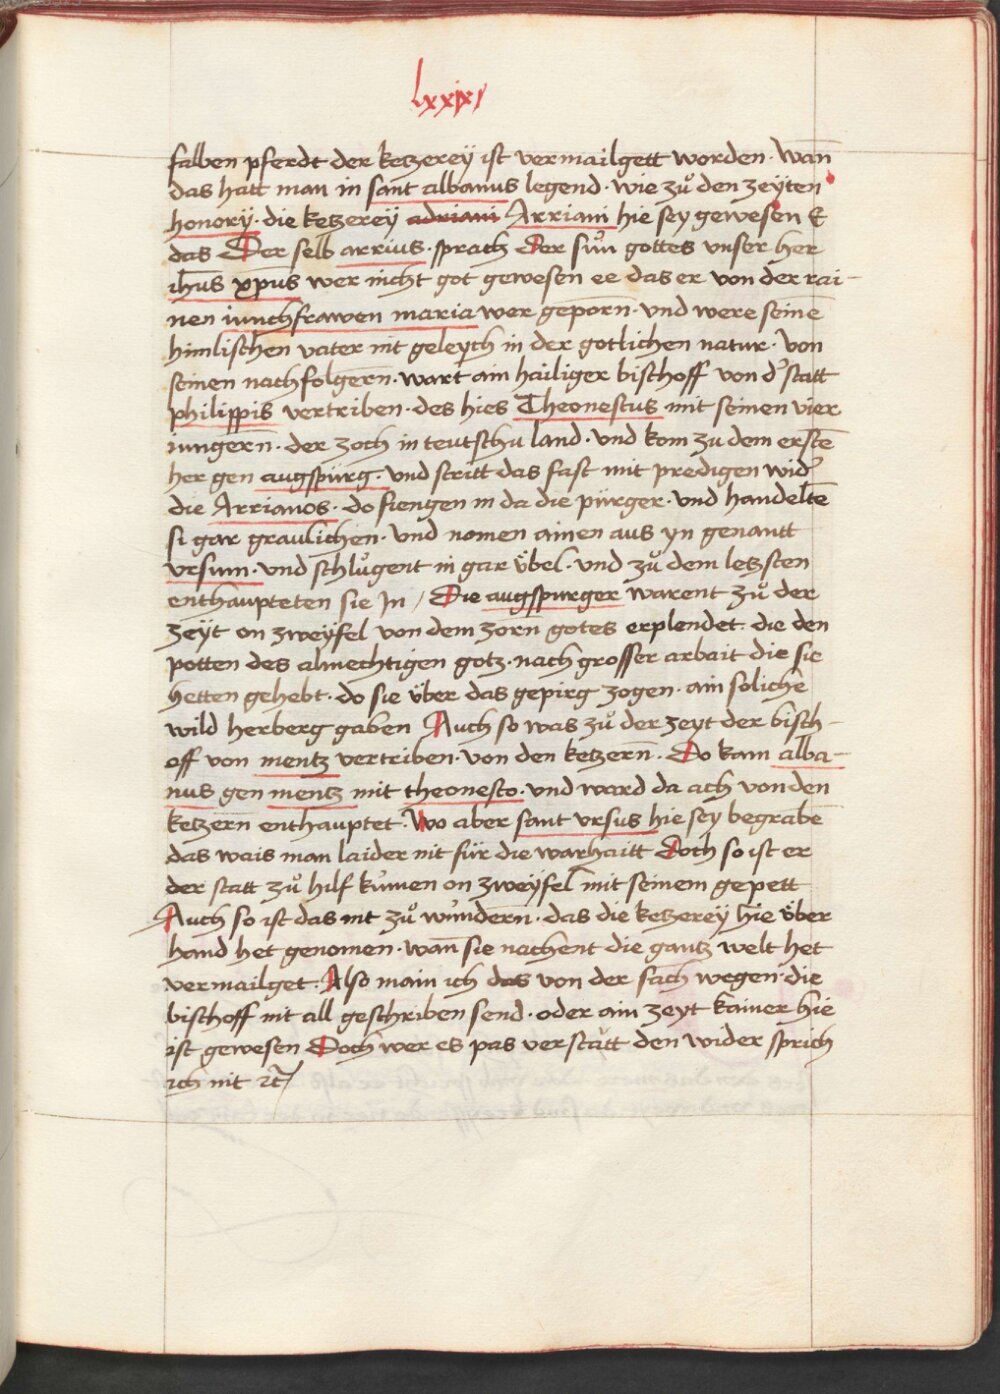 lxxix
falben pferdt der ketzereÿ ist vermailgett worden · wan̄
das hatt man in sant albanus legend · wie zů den zeÿten
honorÿ · die ketzereÿ adriani Arriani hie seÿ gewesen &
das Der selb arrius · sprach Der sůn gottes vnser her
ih̄us xp̄us wer nicht got gewesen ee das er von der rai-
nen iunchfrawen maria wer geporn̄ · vnd were seinē
himlischen vater nit geleÿch in der gotlichen natur · von
seinen nachfolgern̄ · wart ain hailiger bischoff von d' statt
philippis vertriben · des hies Theonestus mit seinen vier
iungern̄ · der zoch in teutschu land · vnd kom zu dem erstē
her gen augspürg · vnd stritt das fast mit predigen wid'
die Arrianos · do fiengen in da die pürger · vnd handeltē
si gar graulichen · vnd nomen ainen aus yn genantt
vrsum · vnd schlůgent in gar v̈bel · vnd zů dem letzsten
enthaupteten sie Jn / Die augspurger warent zů der
zeÿt on zweÿfel von dem zorn̄ gotes erplendet die den
potten des almechtigen gotz · nach grosser arbait die sie
hetten gehebt · do sie v̈ber das gepirg zogen · ain solichē
wild herberg gaben Auch so was zů der zeyt der bisch-
off von mentz vertriben · von den ketzern̄ · Do kam alba-
nus gen mentz mit theonesto · vnd ward da ach von den
ketzern̄ enthauptet · Wo aber sant vrsus hie seÿ begrabē
das wais man laider nit für die warhaitt Doch so ist er
der statt zů hilf kůmen on zweÿfel mit seinem gepett
Auch so ist das nit zů wůndern̄ · das die ketzereÿ hie v̈ber
hand het genomen · wan̄ sie nachent die gantz welt het
vermailget · Also main ich das von der sach wegen · die
bischoff nit all geschriben send · oder ain zeyt kainer hie
ist gewesen Doch wer es pas verstatt den wider sprich
ich nit ꝛc̄